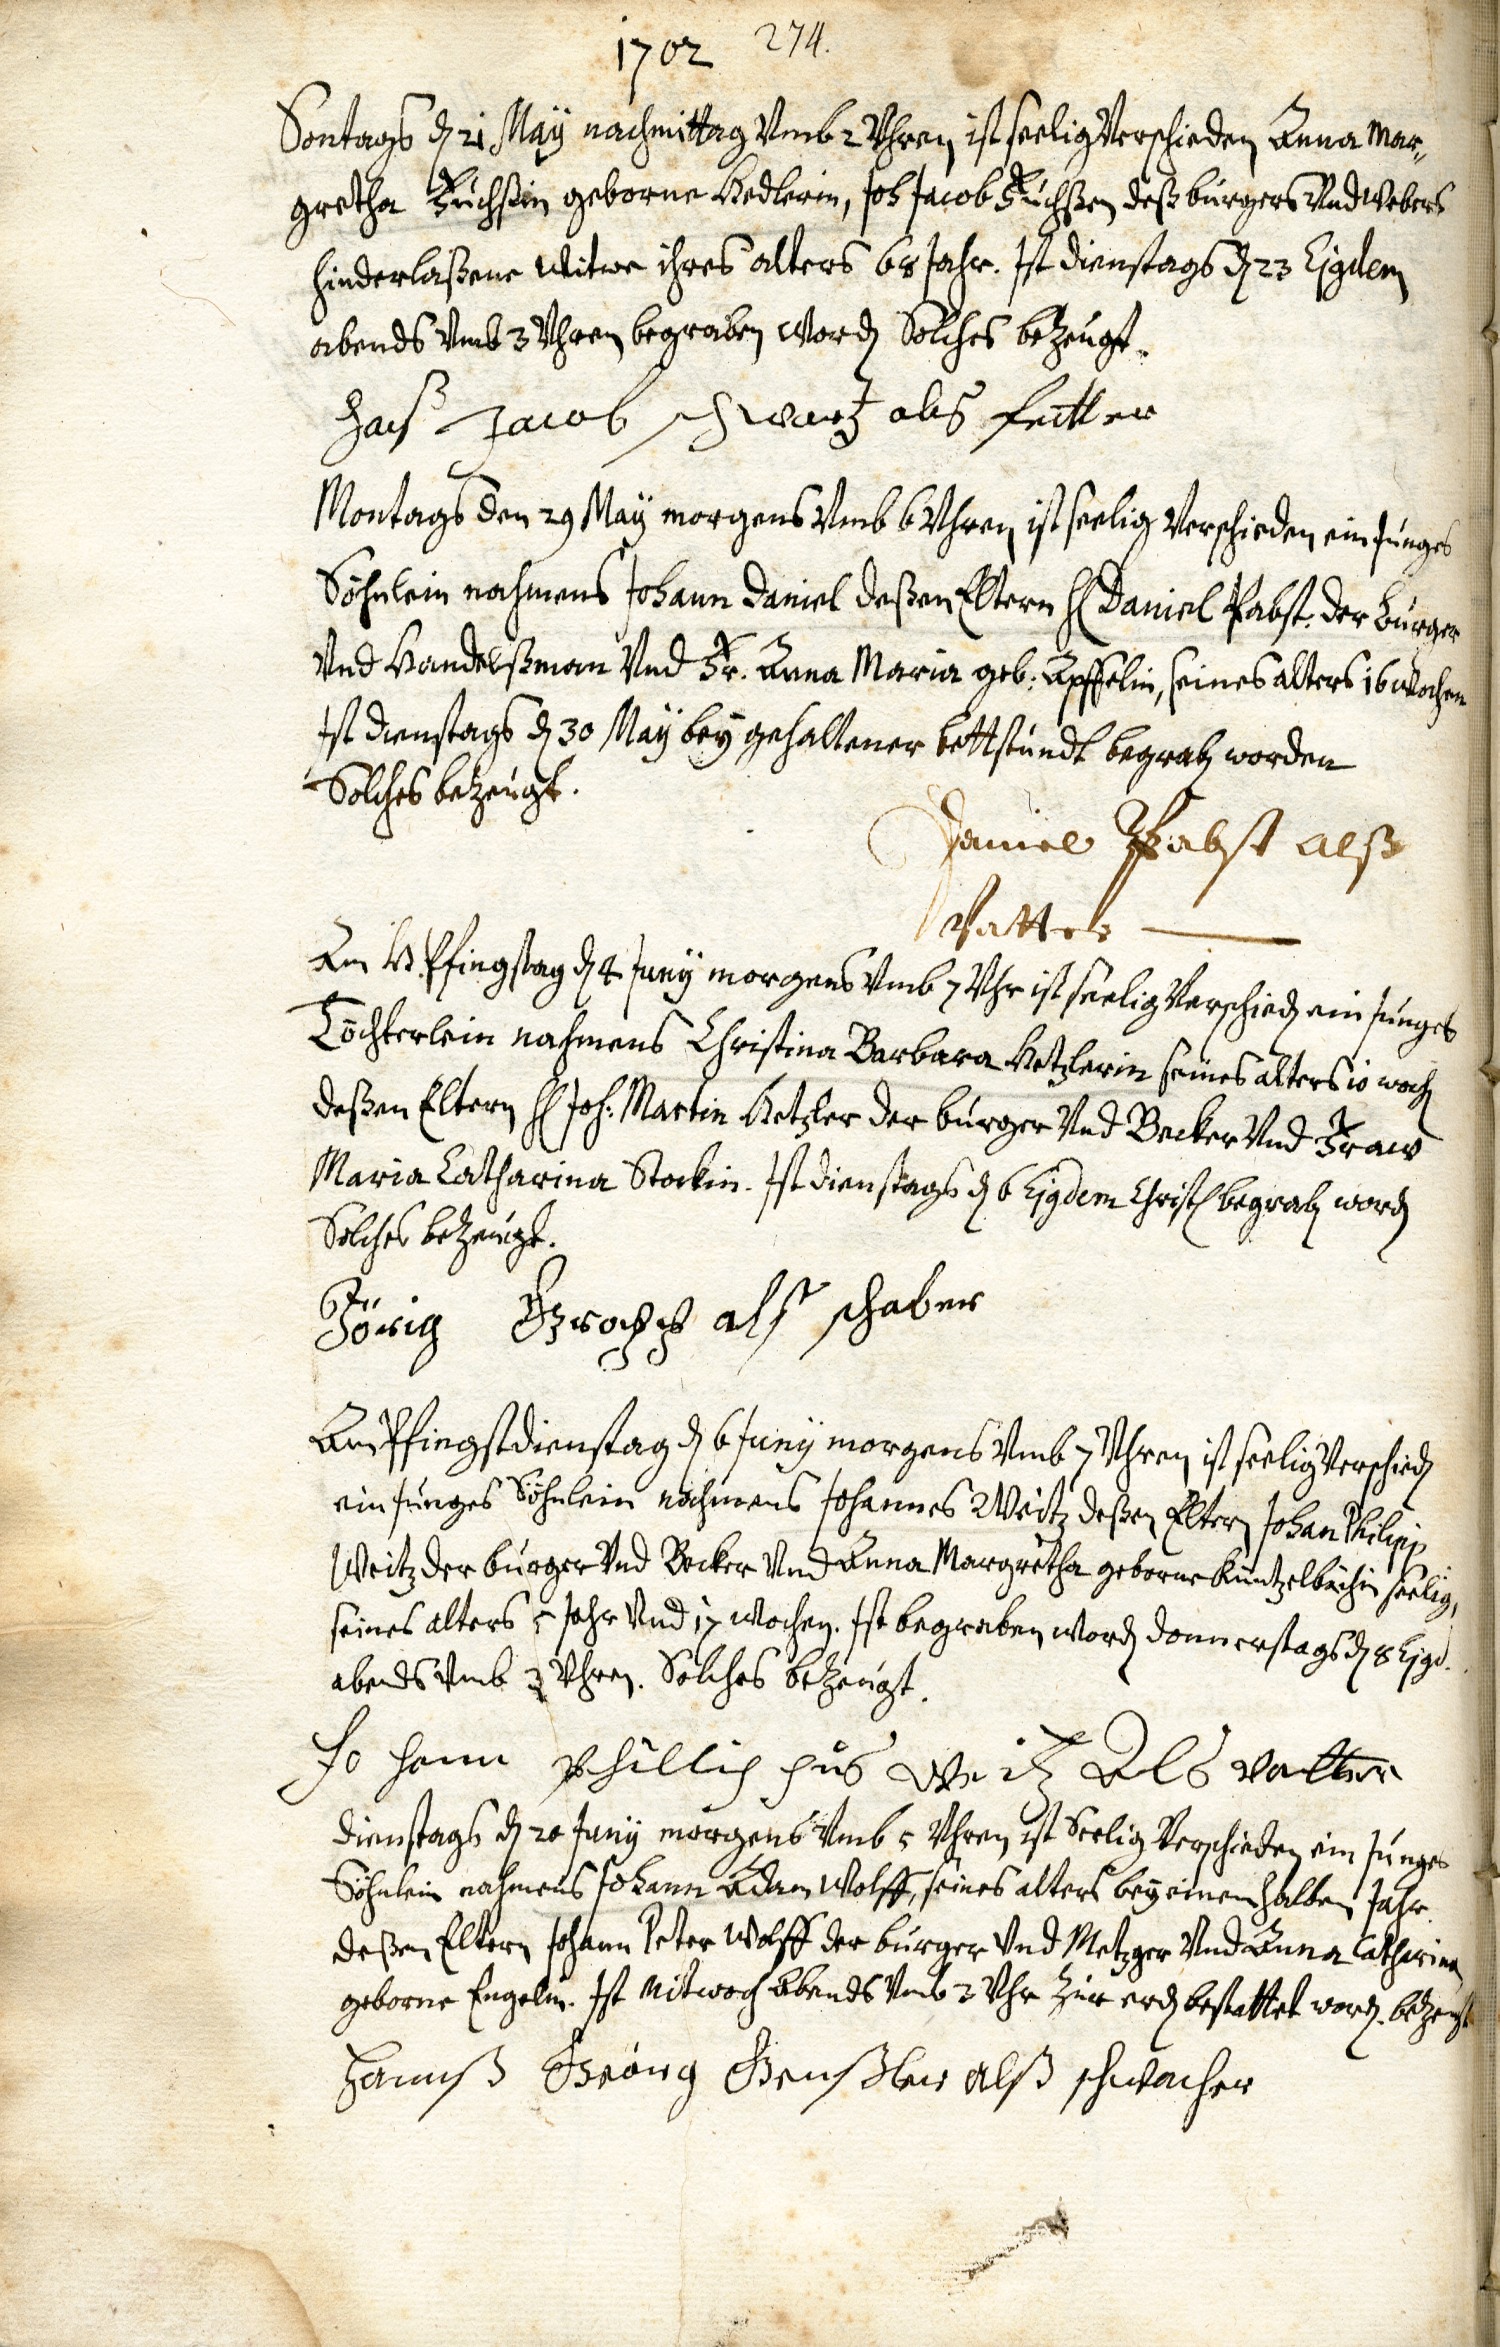 1702 274.
Sontags d 21 Maÿ nachmittag Vmb 2 Vhren ist seelig Verschieden Anna Mar„
gretha Füchßin geborne Hedlerin, Joh Jacob Füchßen deß bürgers Vnd Webers
hinderlaßene Witwe ihres alters 68 Jahr. Ist dienstags d 23 Ejgdem
abends Vmb 3 Vhren begraben word Solches bezeügt.
Hanß Jacob schwartz als fetter
Montags den 29 Maÿ morgens Vmb 6 Vhren ist seelig Verschieden ein Junges
Söhnlein nahmens Johann Daniel deßen Eltern H Daniel Pabst. der bürger
Vnd Handelßman Vnd Fr. Anna Maria geb: Apffelin, seines alters 16 Wochen
Ist dienstags d 30 Maÿ beÿ gehaltener bettstundt begrab worden
Solches bezeügt.
Daniel Pabst alß
Vatter
Am H. Pfingstag d 4 Junÿ morgens Vmb 7 Vhr ist seelig Verschied ein Junges
Töchterlein nahmens Christina Barbara Hetzlerin seines alters 10 woch
deßen Eltern H Joh: Martin Hetzler der bürger Vnd Becker Vnd Fraw
Maria Catharina Stockin. Ist dienstags d 6 Ejgdem Christl begrab word
Solches bezeügt.
Jörig Gropp alß schaber
Am Pfingstdienstag d 6 Junÿ morgens Vmb 7 Vhren ist seelig Verschied
ein Junges Söhnlein nahmens Johannes Weitz deßen Eltern Johan Philipp
Weitz der bürger Vnd Becker Vnd Anna Margretha geborne Küntzelbächin seelig,
seines alters 5 Jahr Vnd 17 Wochen. Ist begraben word donnerstags d 8 Ejgd.
abends Vmb 3 Vhren. Solches bezeügt.
Johann Phillippus Weitz Als vatter
Dienstags d 20 Junÿ morgens Vmb 5 Vhren ist Seelig Verschieden ein Junges
Söhnlein nahmens Johann Adam Wolff, seines alters beÿ einem halben Jahr
deßen Eltern Johann Peter Wolff der bürger Vnd Metzger Vnd Anna Catharina
geborne Engelin. Ist Mitwoch Abends Vmb 3 Vhr zur erd bestattet word. bezeügt
Hannß Geörg Genßler alß schwacher